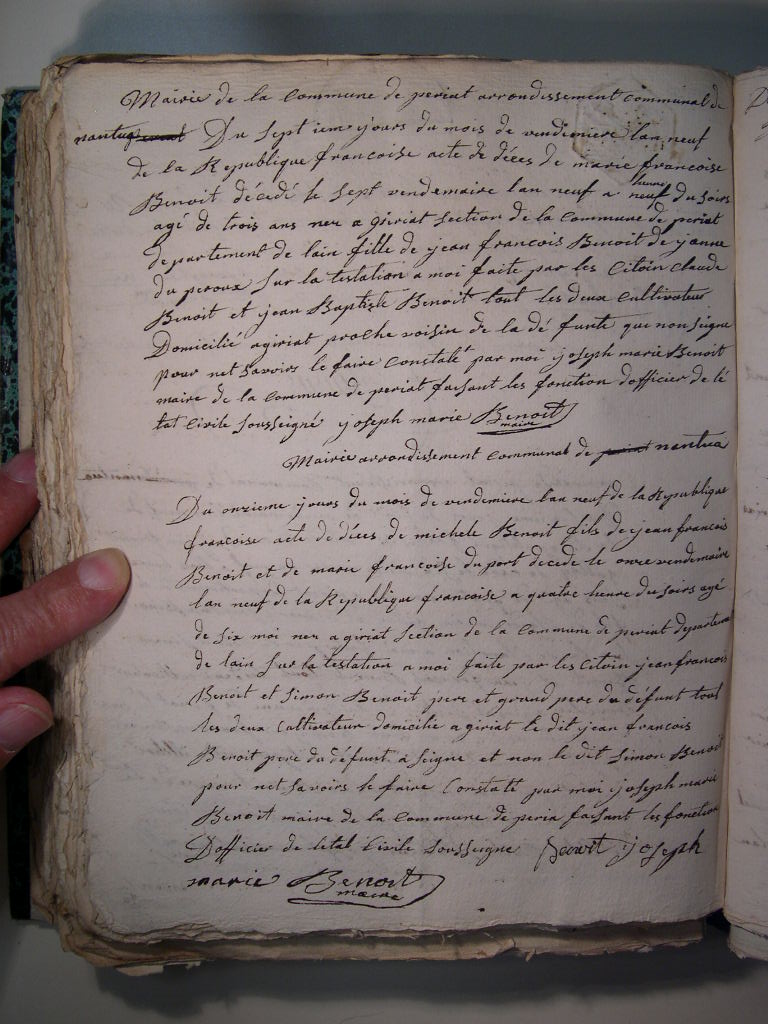 Mairie de la Commune de periat arrondissement communal de
nantua periat Du Sept iem jours du mois de vendimiere lan neuf
de la Republique francoise acte de déces de marie francoise
Benoit décédé le Sept vendemaire lan neuf a neuf heure du soirs
agé de trois ans nez a giriat Section de la Commune de periat
departement de lain fille de jean francois Benoit de janne
du peroux Sur la testation a moi faite par les Citoin Claude
Benoit et jean Baptiste Benoit tout les deux Cultivateur
Domicilié agiriat proche voisin de la dé funte que non signe
pour net Savoirs le faire Constaté par moi ijoseph marie Benoit
maire de la Commune de periat faisant les fonction dofficier de lé
tat Civile Sousseigné ijoseph marie Benoit
maire
Mairie arrondissement Communal de periat nantua
Du onzieme jours du mois de vendemiere lan neuf de la Republique
francoise acte de déces de michele Benoit fils de jean francois
Benoit et de marie francoise du port decede le onze vendemaire
lan neuf de la Republique francoise a quatre heure du soirs agé
de Six moi nez a giriat Section de la Commune de periat departemen
de lain Sur la testation a moi faite par les Citoin jean francois
Benoit et Simon Benoit pere et grand pere du défunt tout
les deux Cultivateur domicilié a giriat le dit jean francois
Benoit pere du défunt a Seigne et non le dit Simon Benoit
pour net Savoirs le faire Constaté par moi ijoseph marie
Benoit maire de la Commune de peria faisant les fonction
Dofficier de létat Civile Sousseigne Benoit ijoseph
marie Benoit
maire